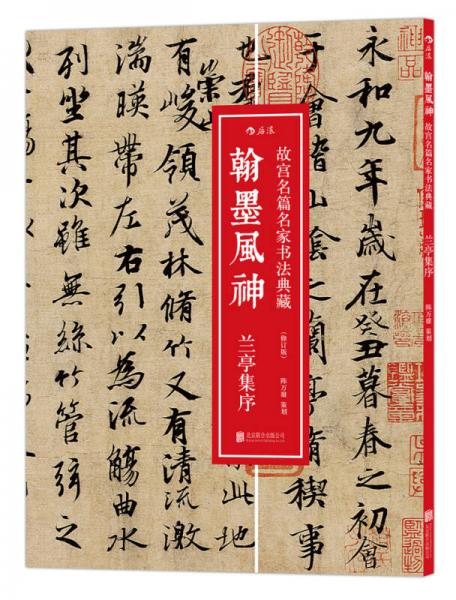 永和九年歲在癸丑暮春之初會
于會稽山陰之蘭亭脩稧事
也
此地
崇山
有峻領茂林脩竹又有清流激
湍暎帶左右引以為流觴曲水
列坐其次雖無絲竹管弦之
后浪
故宫名篇名家书法典藏
翰墨風神
(修订版)
兰亭集序
陈万雄 策划
北京联合出版公司
后浪
翰墨風神
故宫名篇名家书法典藏
兰亭集序
陈万雄 策划